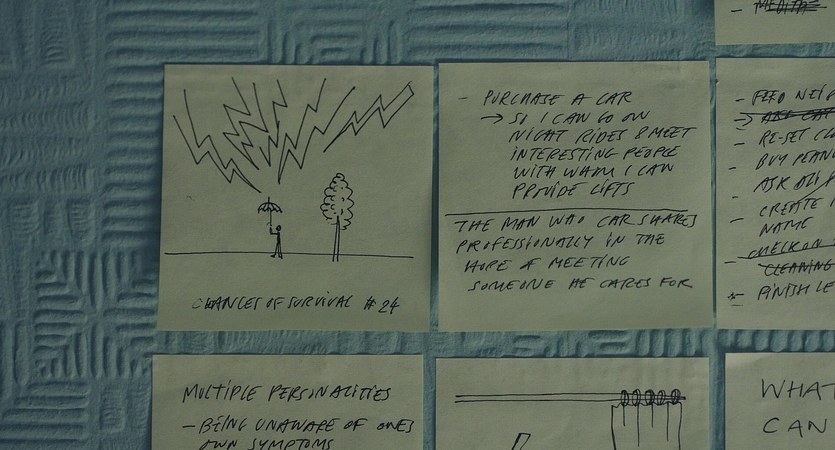 CHANCES OF SURVIVAL # 24
- PURCHASE A CAR
→ SO I CAN GO ON
NIGHT RIDES & MEET
INTERESTING PEOPLE
WITH WHOM I CAN
PROVIDE LIFTS
THE MAN WHO CAR SHARES
PROFESSIONALLY IN THE
HOPE OF MEETING
SOMEONE HE CARES FOR
- FEED NEI
- RE-SET CL
- BUY PEAN
- ASK
- CREATE
NAME
CHECK ON
CLEANING
FINISH LE
MULTIPLE PERSONALITIES
- BEING UNAWARE OF ONES
OWN SYMPTOMS
WHAT
CAN